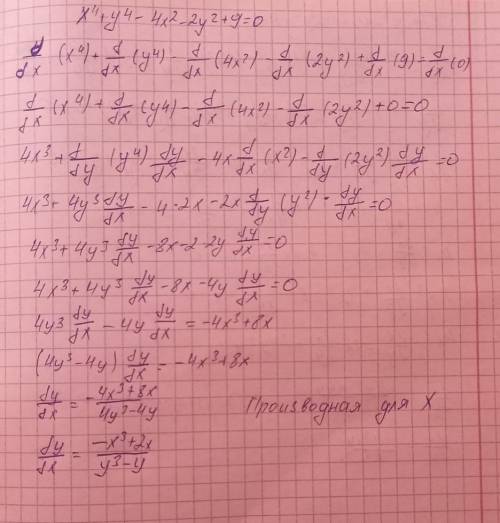 x⁴ + y⁴ - 4x² - 2y² + 9 = 0
d/dx (x⁴) + d/dx (y⁴) - d/dx (4x²) - d/dx (2y²) + d/dx (9) = d/dx (0)
d/dx (x⁴) + d/dx (y⁴) - d/dx (4x²) - d/dx (2y²) + 0 = 0
4x³ + d/dy (y⁴) dy/dx - 4x d/dx (x²) - d/dy (2y²) dy/dx = 0
4x³ + 4y³ dy/dx - 4 · 2x - 2x d/dy (y²) · dy/dx = 0
4x³ + 4y³ dy/dx - 8x - 2 · 2y dy/dx = 0
4x³ + 4y³ dy/dx - 8x - 4y dy/dx = 0
4y³ dy/dx - 4y dy/dx = -4x³ + 8x
(4y³ - 4y) dy/dx = -4x³ + 8x
dy/dx = -4x³ + 8x / 4y³ - 4y Производная для X
dy/dx = -x³ + 2x / y³ - y